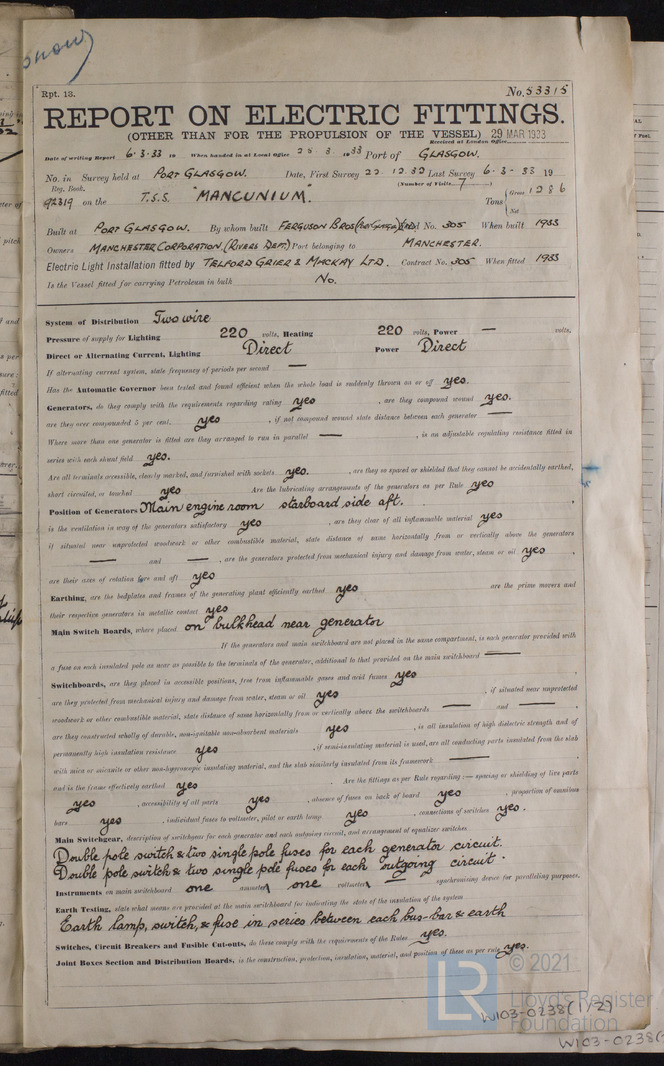 Rpt. 13.
No. 53315
REPORT ON ELECTRIC FITTINGS.
(OTHER THAN FOR THE PROPULSION OF THE VESSEL) 29 MAR 1933
Received at London Office
Date of writing Report 6.3.33 19 When handed in at Local Office 28 3. 1933 Port of GLASGOW.
No. in Survey held at PORT GLASGOW. Date, First Survey 22.12.32 Last Survey 6-3-33 19
Reg. Book. (Number of Visits 7)
92319 on the T.S.S. "MANCUNIUM". Tons Gross 1286
Net
Built at PORT GLASGOW. By whom built FERGUSON BROS (PORT GLASGOW) LTD Yard No. 305 When built 1933
Owners MANCHESTER CORPORATION (RIVERS DEPT.) Port belonging to MANCHESTER.
Electric Light Installation fitted by TELFORD GRIER & MACKAY LTD. Contract No. 305 When fitted 1933
Is the Vessel fitted for carrying Petroleum in bulk No.
System of Distribution Two wire
Pressure of supply for Lighting 220 volts, Heating 220 volts, Power — volts.
Direct or Alternating Current, Lighting Direct Power Direct
If alternating current system, state frequency of periods per second —
Has the Automatic Governor been tested and found efficient when the whole load is suddenly thrown on or off yes.
Generators, do they comply with the requirements regarding rating yes, are they compound wound yes.
are they over compounded 5 per cent. yes, if not compound wound state distance between each generator —
Where more than one generator is fitted are they arranged to run in parallel —, is an adjustable regulating resistance fitted in
series with each shunt field yes.
Are all terminals accessible, clearly marked, and furnished with sockets yes., are they so spaced or shielded that they cannot be accidentally earthed,
short circuited, or touched yes Are the lubricating arrangements of the generators as per Rule yes
Position of Generators Main engine room starboard side aft.
is the ventilation in way of the generators satisfactory yes, are they clear of all inflammable material yes
if situated near unprotected woodwork or other combustible material, state distance of same horizontally from or vertically above the generators
— and —, are the generators protected from mechanical injury and damage from water, steam or oil yes,
are their axes of rotation fore and aft yes
Earthing, are the bedplates and frames of the generating plant efficiently earthed yes are the prime movers and
their respective generators in metallic contact yes
Main Switch Boards, where placed on bulkhead near generator
If the generators and main switchboard are not placed in the same compartment, is each generator provided with
a fuse on each insulated pole as near as possible to the terminals of the generator, additional to that provided on the main switchboard —
Switchboards, are they placed in accessible positions, free from inflammable gases and acid fumes yes
are they protected from mechanical injury and damage from water, steam or oil yes, if situated near unprotected
woodwork or other combustible material, state distance of same horizontally from or vertically above the switchboards — and —,
are they constructed wholly of durable, non-ignitable non-absorbent materials yes, is all insulation of high dielectric strength and of
permanently high insulation resistance yes, if semi-insulating material is used, are all conducting parts insulated from the slab
with mica or micanite or other non-hygroscopic insulating material, and the slab similarly insulated from its framework —,
and is the frame effectively earthed yes Are the fittings as per Rule regarding:— spacing or shielding of live parts
yes, accessibility of all parts yes, absence of fuses on back of board yes, proportion of omnibus
bars yes, individual fuses to voltmeter, pilot or earth lamp yes, connections of switches yes.
Main Switchgear, description of switchgear for each generator and each outgoing circuit, and arrangement of equalizer switches
Double pole switch & two single pole fuses for each generator circuit.
Double pole switch & two single pole fuses for each outgoing circuit.
Instruments on main switchboard one ammeter one voltmeter — synchronising device for paralleling purposes.
Earth Testing, state what means are provided at the main switchboard for indicating the state of the insulation of the system
Earth lamp, switch, & fuse in series between each bus-bar & earth
Switches, Circuit Breakers and Fusible Cut-outs, do these comply with the requirements of the Rules yes.
Joint Boxes Section and Distribution Boards, is the construction, protection, insulation, material, and position of these as per rule yes.
LR © 2021
Lloyd's Register
Foundation
W103-0238(1/2)
W103-0238(